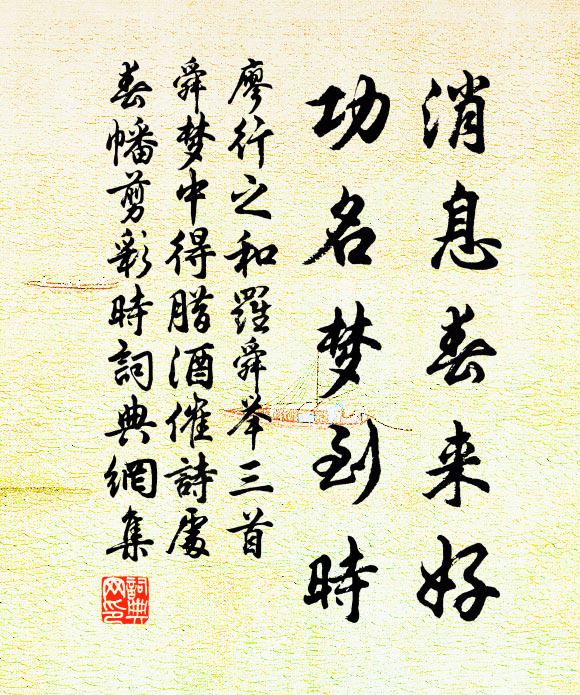 消息春来好
功名梦到時
廖行之和羅舜举三首
舜梦中得腊酒催詩處
春幡剪彩時詞典網集
詞典
网印